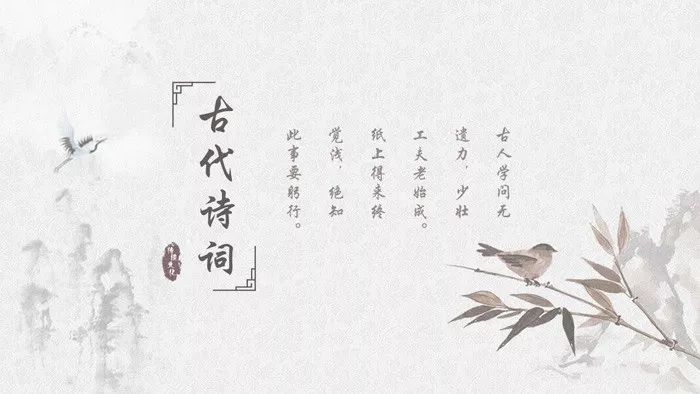 古代诗词
传统文化
古人学问无
遗力，少壮
工夫老始成。
纸上得来终
觉浅，绝知
此事要躬行。